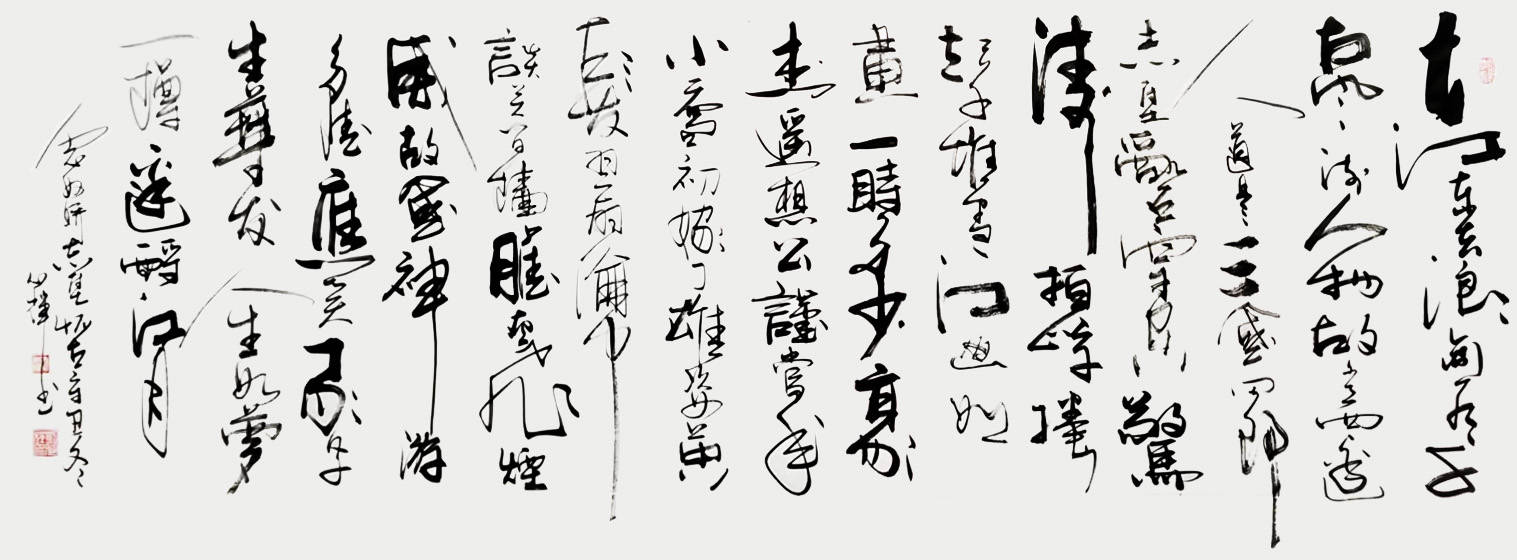 大江东去浪淘尽千
古风流人物故垒西边
人道是三國周郎
赤壁亂石穿空驚
涛拍岸捲
起千堆雪江山如
畫一時多少豪
杰遥想公謹當年
小喬初嫁了雄姿英
发羽扇綸巾
談笑间墙艣灰飛煙
滅故國神游
多情應笑我早
生華发人生如夢
一樽還酹江月
念奴娇赤壁怀古辛丑冬
輝书